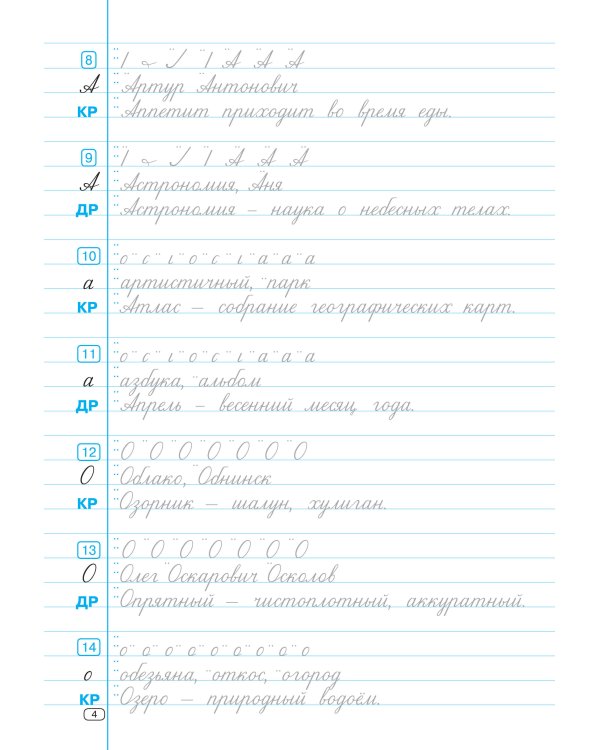 8 / ~ / / А А А
А Артур Антонович
КР Аппетит приходит во время еды.
9 / ~ / / А А А
А Астрономия, Аня
ДР Астрономия – наука о небесных телах.
10 о с ι о с ι а а а
а артистичный, парк
КР Атлас – собрание географических карт.
11 о с ι о с ι а а а
а азбука, альбом
ДР Апрель – весенний месяц года.
12 О О О О О О О
О Облако, Обнинск
КР Озорник – шалун, хулиган.
13 О О О О О О О
О Олег Оскарович Осколов
ДР Опрятный – чистоплотный, аккуратный.
14 о о о о о о о о о
о обезьяна, откос, огород
КР Озеро – природный водоём.
4